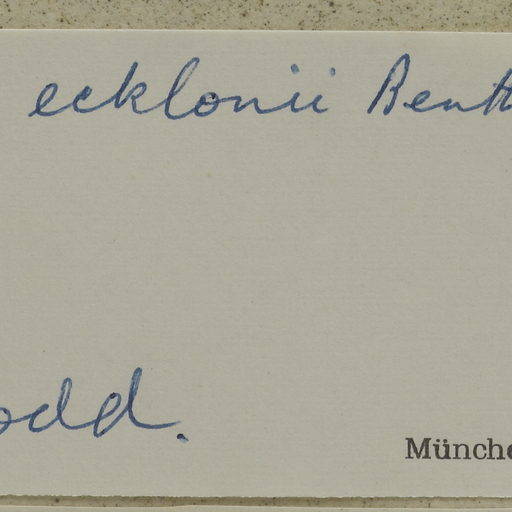 ecklonii Benth
odd.
Münche